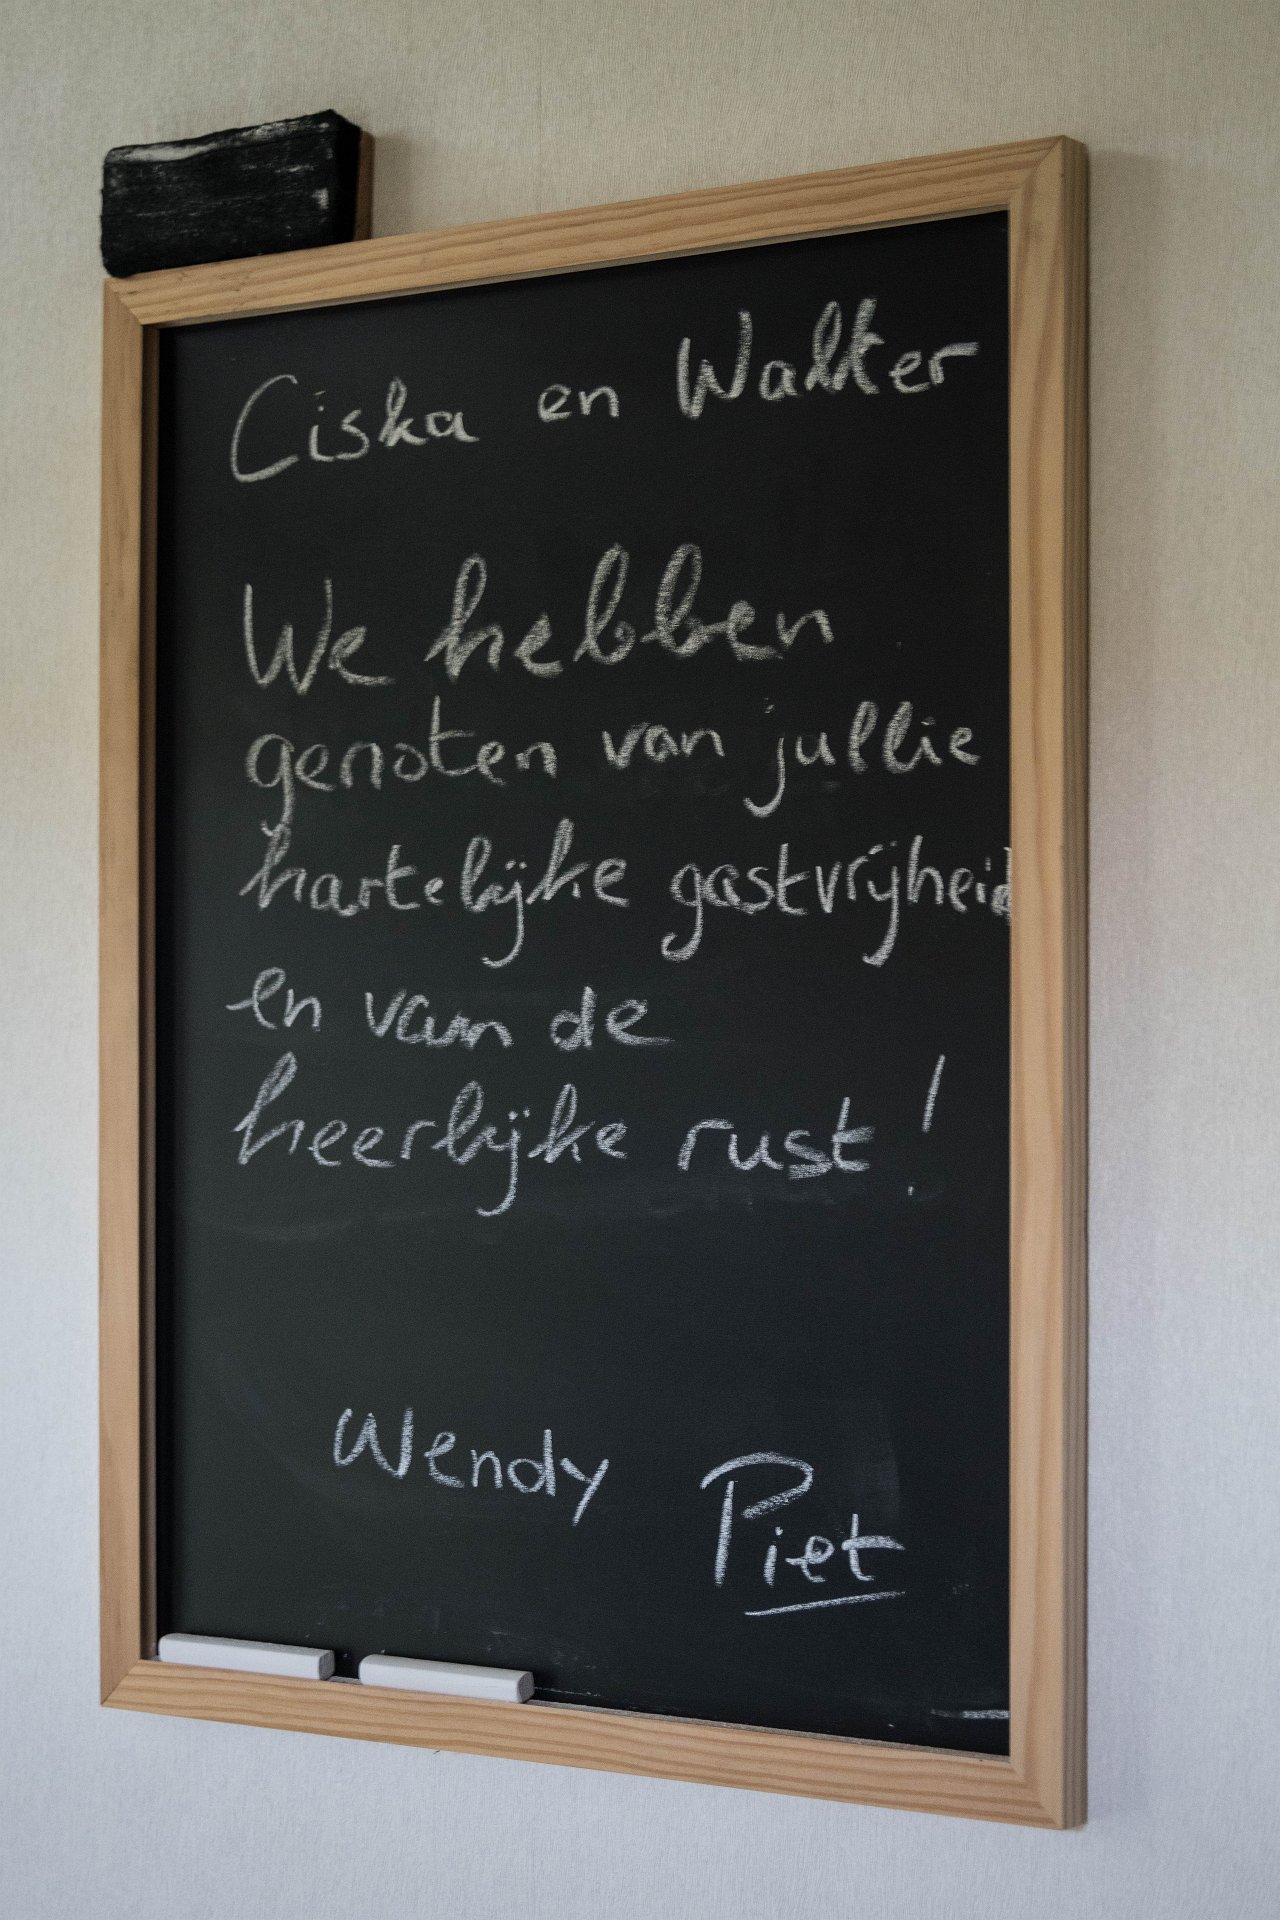 Ciska en Walter
We hebben
genoten van jullie
hartelijke gastvrijheid
en van de
heerlijke rust!
Wendy
Piet